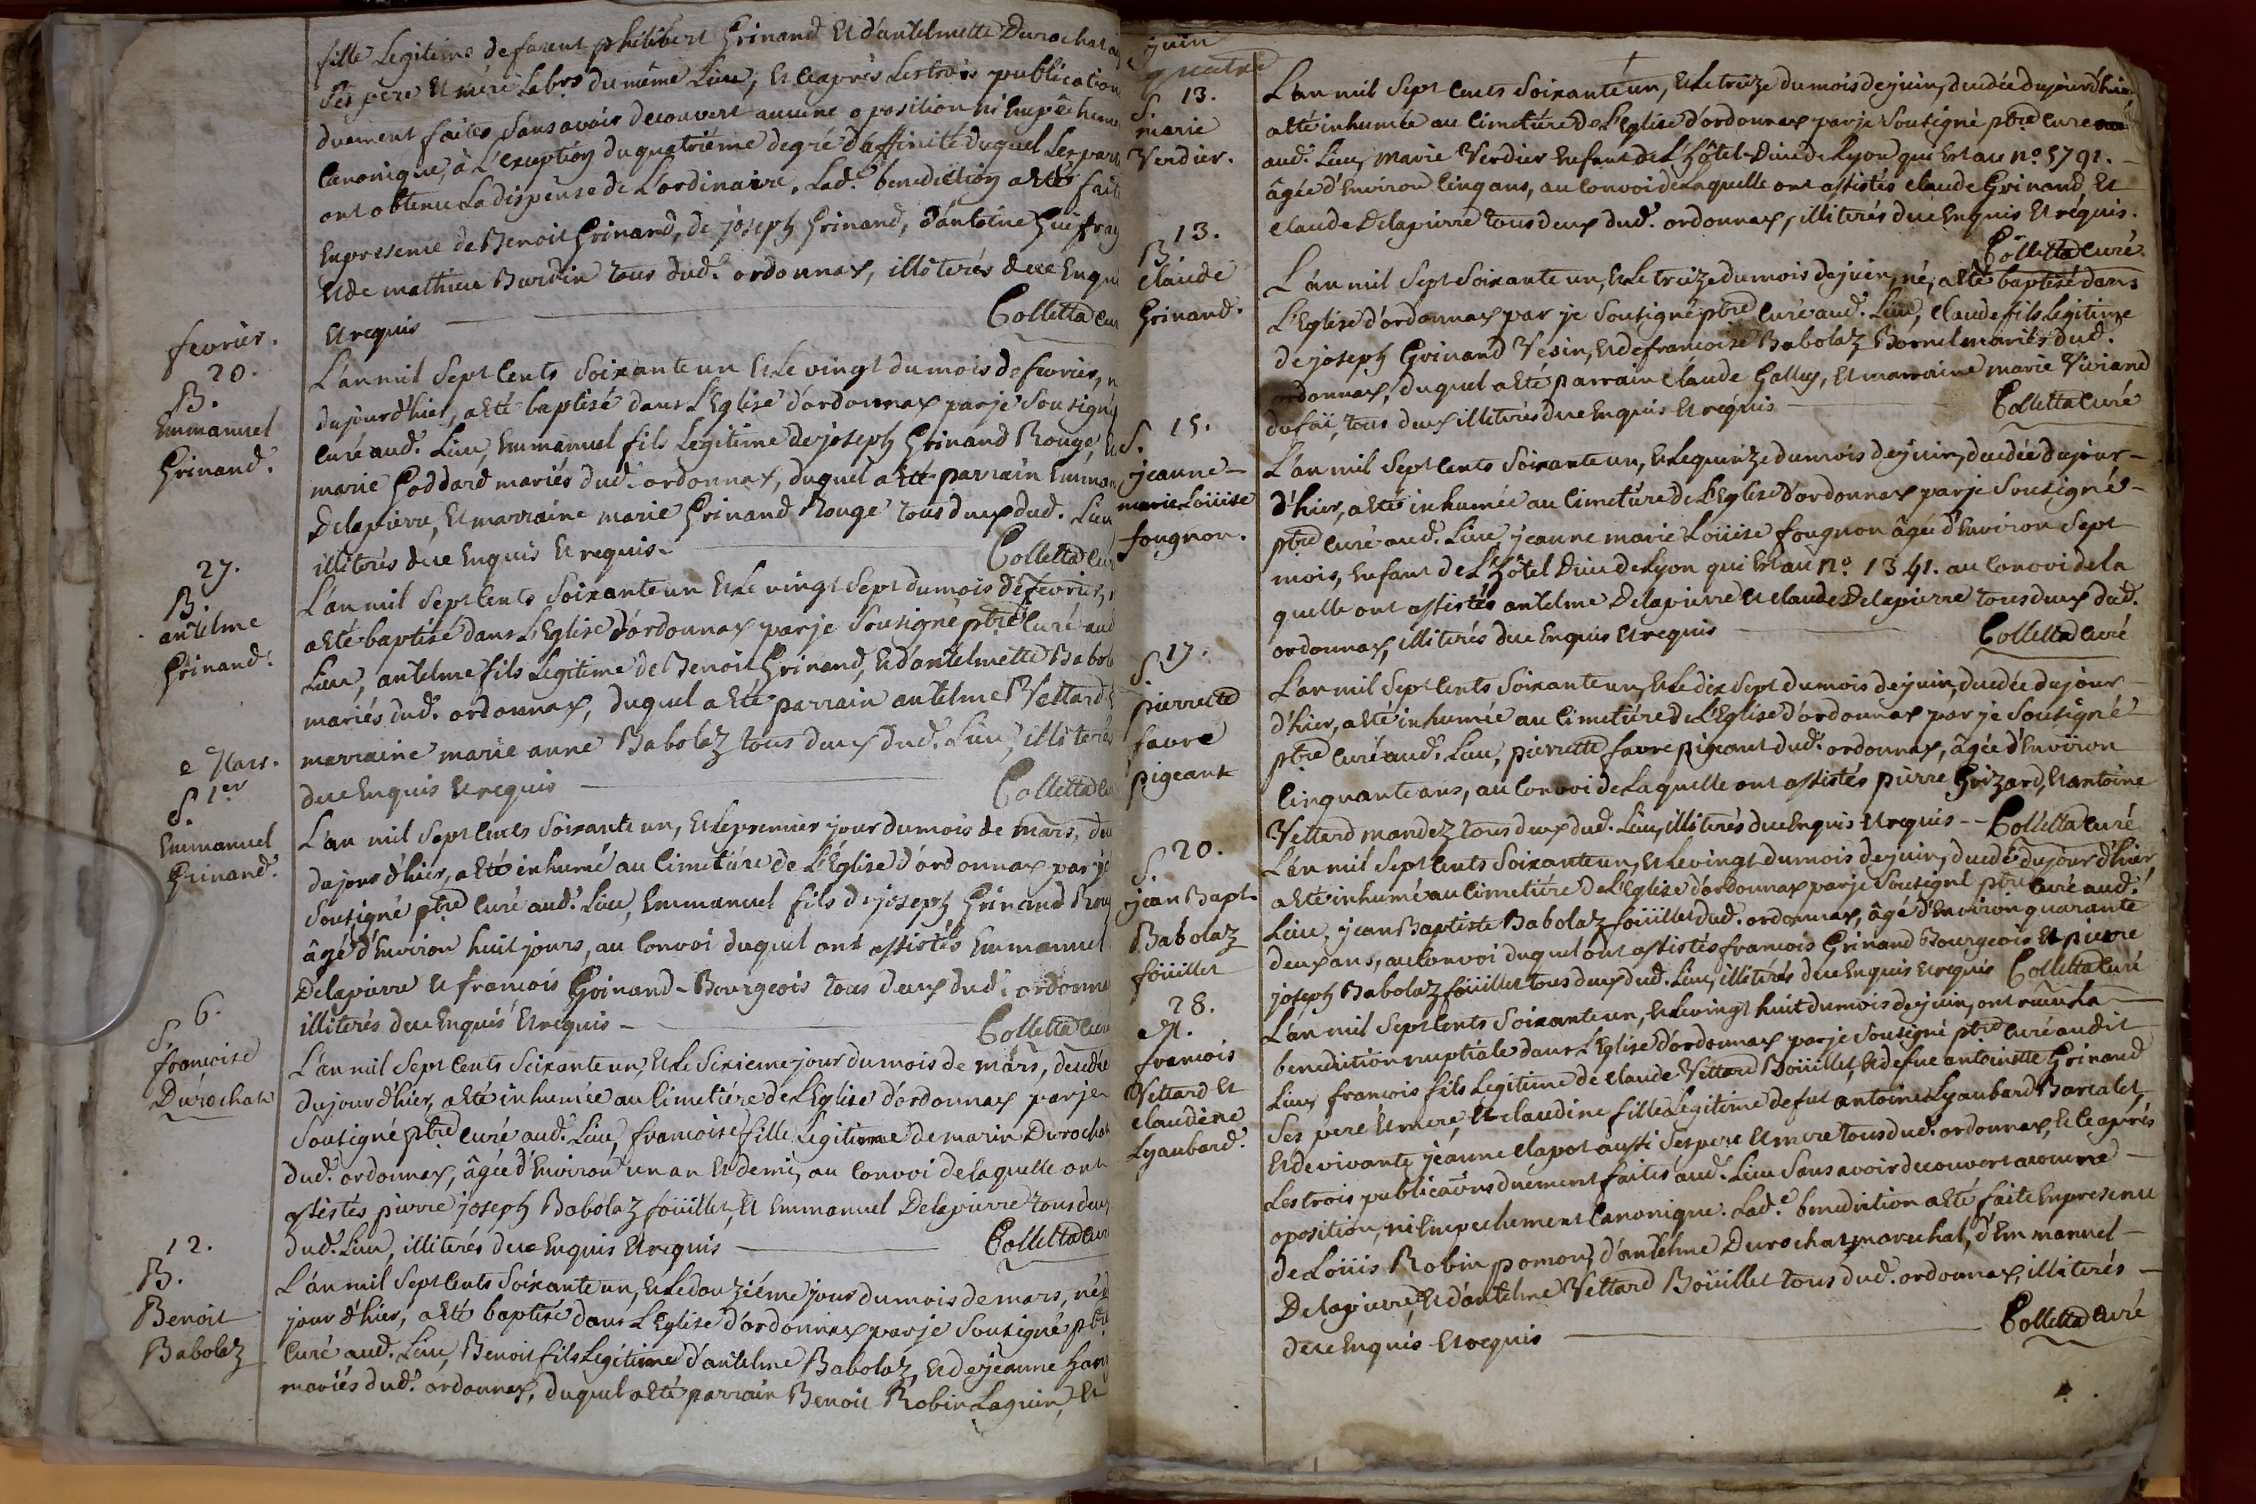 fille Legitime de farent philibert Grinand Et d'antelmette Durochat
Ses pere Et mere Labrs du même Lieu, Et ce après Les trois publication
duement faites, Sans avoir decouvert aucune oposition ni Empêcheme
Canonique, à L'exception du quatriéme degré d'affinité duquel Les part
ont obtenu La dispense de L'ordinaire, Lad.e benediction a Eté fait
En presense de Benoit Grinand, de joseph Grinand, d'antoine
Et de mathieu Burdin tous dud.t ordonnax, illiterés de ce Enqu
Et requis Colletta cur
fevrier.
20.
B.
Emmanuel
Grinand.
L'an mil Sept Cents Soixante un Et Le vingt du mois de fevrier, n
du jour d'hier, a Eté baptisé dans L'Eglise d'ordonnax par je Sousigné
Curé aud.t Lieu, Emmanuel fils Legitime de joseph Grinand Rouge, Et
marie Goddard mariés dud.t ordonnax, duquel a Eté parrain Emman
Delapierre, Et marraine marie Grinand Rouge tous deux dud.t Lieu
illiterés de ce Enquis Et requis. Colletta cur
27.
B.
antelme
Grinand.
L'an mil Sept Cents Soixante un Et Le vingt Sept du mois de fevrier,
a Eté baptisé dans L'Eglise d'ordonnax par je Sousigné ptre Curé aud
Lieu, antelme fils Legitime de Benoit Grinand, Et d'antelmette Babol
mariés dud.t ordonnax, duquel a Eté parrain antelme Vettard
marraine marie anne Babolaz tous deux dud.t Lieu, illiterés
de ce Enquis Et requis Colletta cu
Mars.
1er
S.
Emmanuel
Grinand.
L'an mil Sept Cents Soixante un, Et Le premier jour du mois de mars, de
du jour d'hier, a Eté inhumé au Cimetiére de L'Eglise d'ordonnax par je
Sousigné ptre Curé aud.t Lieu, Emmanuel fils de joseph Grinand Rou
âgé d'Environ huit jours, au Convoi duquel ont assistés Emmanuel
Delapierre Et francois Grinand-Bourgeois tous deux dud.t ordonna
illiterés de ce Enquis Et requis - Colletta curé
6.
S.
francoise
Durochat
L'an mil Sept Cents Soixante un, Et Le Sixieme jour du mois de mars, decedée
du jour d'hier, a Eté inhumée au Cimetiére de L'Eglise d'ordonnax par je
Sousigné ptre Curé aud.t Lieu, francoise fille Legitime de marin Durochat
dud.t ordonnax, âgée d'Environ un an Et demi, au Convoi de laquelle ont
assistés pierre joseph Babolaz foüillet, Et Emmanuel Delapierre tous deux
dud.t Lieu, illiterés de ce Enquis Et requis Colletta cur
12.
B.
Benoit
Babolaz
L'an mil Sept Cents Soixante un, Et Le douziéme jour du mois de mars, né
jour d'hier, a Eté baptisé dans L'Eglise d'ordonnax par je Sousigné ptre
Curé aud.t Lieu, Benoit fils Legitime d'antelme Babolaz, Et de jeanne
mariés dud.t ordonnax, duquel a Eté parrain Benoit Robin Laguin, Et
juin
quatre
13.
S.
marie
Verdier.
L'an mil Sept Cents Soixante un, Et Le treize du mois de juin, decedée du jour d'hier
a Eté inhumée au Cimetiére de L'Eglise d'ordonnax par je Sousigné ptre Curé
aud.t Lieu, marie Verdier Enfant de L'Hôtel-Dieu de Lyon qui Est au n.o 5791.
âgée d'Environ Cinq ans, au Convoi de Laquelle ont assistés claude Grinand, Et
claude Delapierre tous deux dud.t ordonnax, illiterés de ce Enquis Et requis.
Colletta curé.
13.
B.
claude
Grinand.
L'an mil Sept Soixante un, Et Le treize du mois de juin, né, a Eté baptisé dans
L'Eglise d'ordonnax par je Sousigné ptre Curé aud.t Lieu, claude fils Legitime
de joseph Grinand Vesin, Et de francoise Babolaz Bornel mariés dud.t
ordonnax, duquel a Eté parrain claude Gallay, Et marraine marie Viviand
du faï, tous deux illiterés de ce Enquis Et requis Colletta curé
15.
S.
jeanne-
marie Loüise
fougnon.
L'an mil Sept Cents Soixante un, Et Le quinze du mois de juin, decedée du jour-
d'hier, a Eté inhumée au Cimetiére de L'Eglise d'ordonnax par je Sousigné-
ptre Curé aud.t Lieu, jeanne marie Loüise fougnon âgée d'Environ Sept
mois, Enfant de L'Hôtel Dieu de Lyon qui Est au N.o 1341. au Convoi de la
quelle ont assistés antelme Delapierre Et claude Delapierre tous deux dud.t
ordonnax, illiterés de ce Enquis Et requis Colletta curé
17.
S.
pierrette
favre
pigeant
L'an mil Sept Cents Soixante un, Et Le dix Sept du mois de juin, decedée du jour-
d'hier, a Eté inhumée au Cimetiére de L'Eglise d'ordonnax par je Sousigné
ptre Curé aud.t Lieu, pierrette favre pigeant dud.t ordonnax, âgée d'Environ
Cinquante ans, au Convoi de Laquelle ont assistés pierre Grizard, Et antoine
Vettard mandez tous deux dud.t Lieu, illiterés de ce Enquis Et requis -- Colletta Curé
20.
S.
jean Bapt.
Babolaz
foüillet
L'an mil Sept Cents Soixante un, Et Le vingt du mois de juin, decedé du jour d'hier,
a Eté inhumé au Cimetiére de L'Eglise d'ordonnax par je Sousigné ptre Curé aud.t
Lieu, jean Baptiste Babolaz foüillet dud.t ordonnax, âgé d'Environ quarante
deux ans, au Convoi duquel ont assistés francois Grinand Bourgeois Et pierre
joseph Babolaz foüillet tous deux dud.t Lieu, illiterés de ce Enquis Et requis Colletta curé
28.
M.
francois
Vettard Et
claudine
Lyaubard.
L'an mil Sept Cents Soixante un, Et Le vingt huit du mois de juin, ont reçu La
benediction nuptiale dans L'Eglise d'ordonnax par je Sousigné ptre Curé audit
Lieu, francois fils Legitime de claude Vettard Boüillet, Et de fue antoinette Grinand
Ses pere Et mere, Et claudine fille Legitime de fut antoine Lyaubard Barcalet,
Et de vivante jeanne clapot aussi Ses pere Et mere tous dud.t ordonnax, Et ce après
Les trois publications duement faites aud.t Lieu Sans avoir decouvert aucune
oposition, ni Empechement Canonique. Lad.e benediction a Eté faite En presense
de Loüis Robin pomon, d'antelme Durochat marechal, d'Emmanuel
Delapierre, Et d'antelme Vettard Boüillet tous dud.t ordonnax, illiterés
de ce Enquis Et requis Colletta Curé